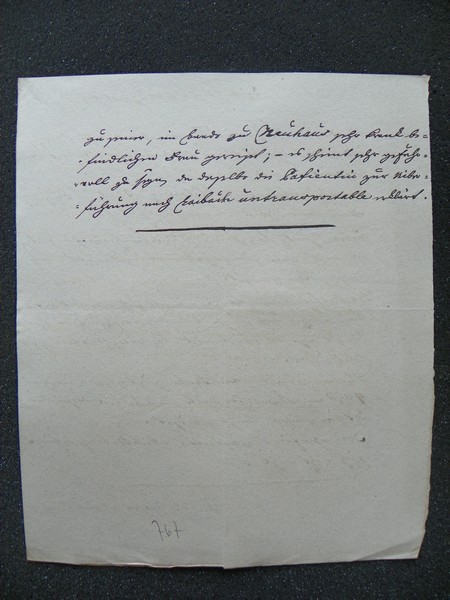 zu seiner, im Bade zu Neuhaus sehr krank be=
=findlichen Frau gereist; – es scheint sehr gefahr=
=voll zu seyn, da derselbe die Patientin zur Uiber=
=führung nach Laibach untransportable erklärt.
767